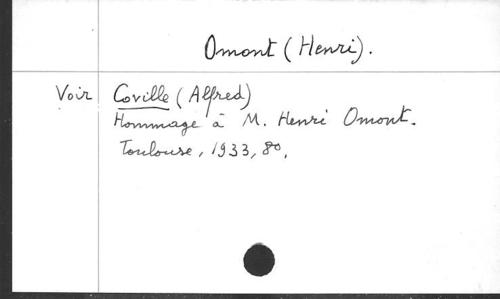 Omont (Henri).
Voir Coville (Alfred)
Hommage à M. Henri Omont.
Toulouse, 1933, 8º.